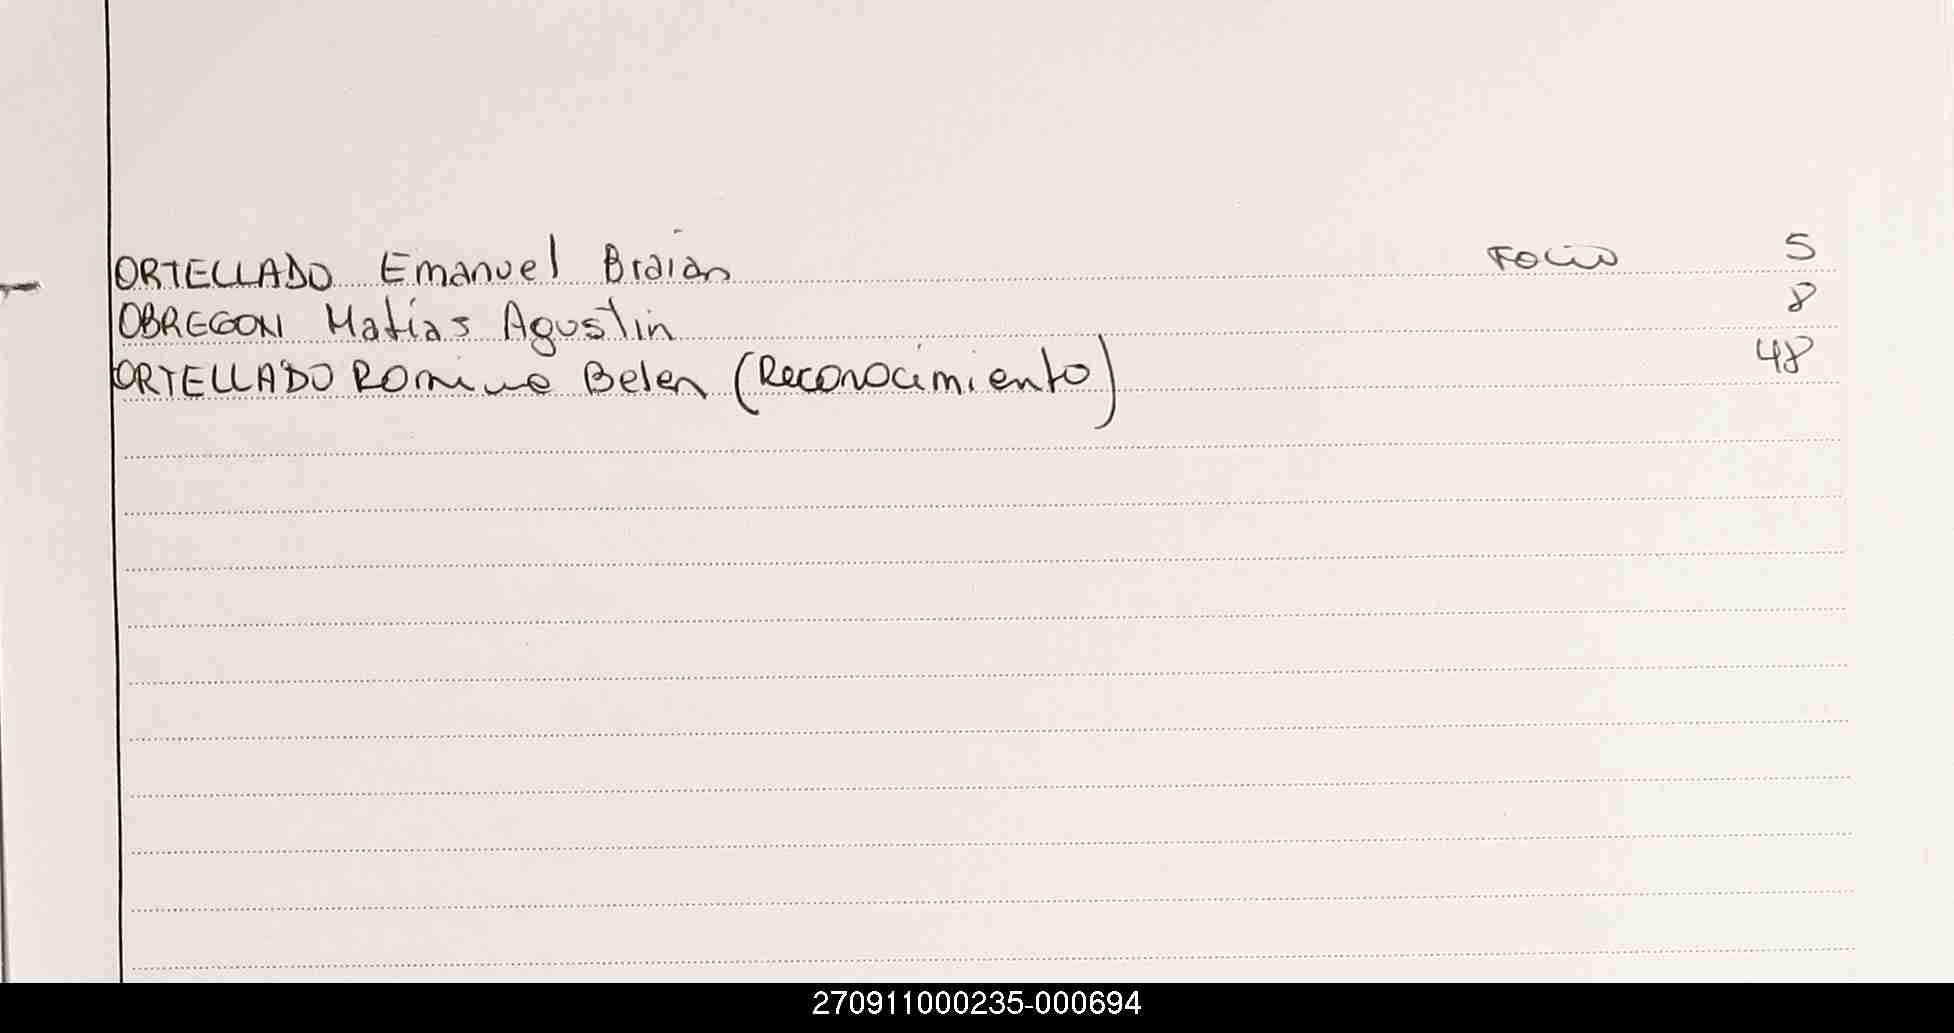 ORTELLADO Emanuel Braian Folio 5
OBREGON Matías Agustin 8
ORTELLADO Romina Belen (Reconocimiento) 48
270911000235-000694